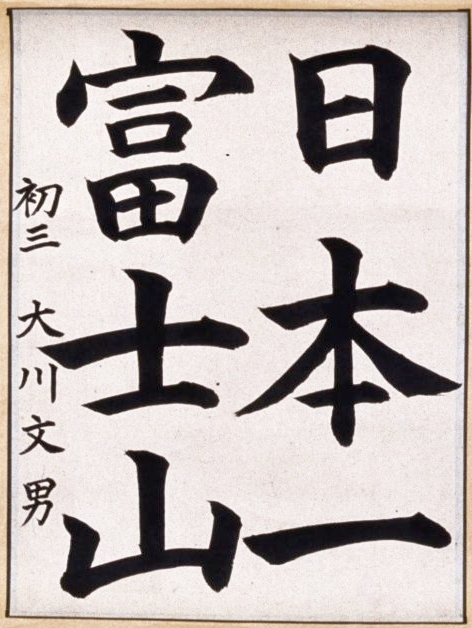 日本一
富士山
初三 大川文男